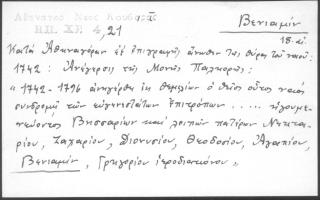 Βενιαμίν
18-αι.
ΗΠ. ΧΡ. 4, 21
Κατά Ἀθηναγόραν ἐξ ἐπιγραφῆς ἄνωθεν τῆς θύρας τοῦ ναοῦ:
1742: Ἀνέγερσις τῆς Μονῆς Πατέρων:
"1742-1796 ἀνηγέρθη ἐκ θεμελίων ὁ θεῖος οὗτος ναός
συνδρομῇ τῶν εὐγενεστάτων ἐπιτρόπων ..... ἡγουμε-
νεύοντος Βησσαρίων καί λοιπῶν πατέρων Νεκτα-
ρίου, Ζαχαρίου, Διονυσίου, Θεοδοσίου, Ἀγαπίου,
Βενιαμίν, Γρηγορίου ἱεροδιακόνου"